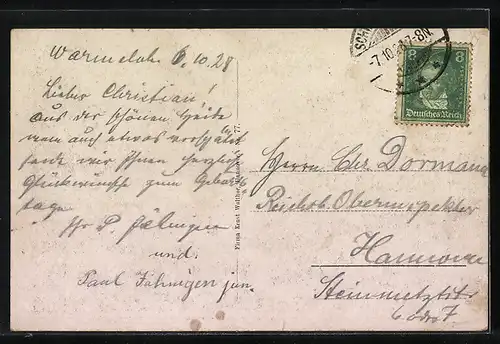 Warmeloh 6.10.28
Lieber Christian!
Aus der schönen Heide
wenn auch etwas verspätet
sende wir Ihnen herzliche
Glückwünsche zum Geburts
tage
Ihr P.
und
Paul jun.
Firma Ernst Walther, 77
SCH
-7.10.28.7-8N.
8 8
Deutsches Reich
Herrn Chr. Dormann
Reichsb. Oberinspektor
Hannover
Steinmetzstr.
6 oder 7